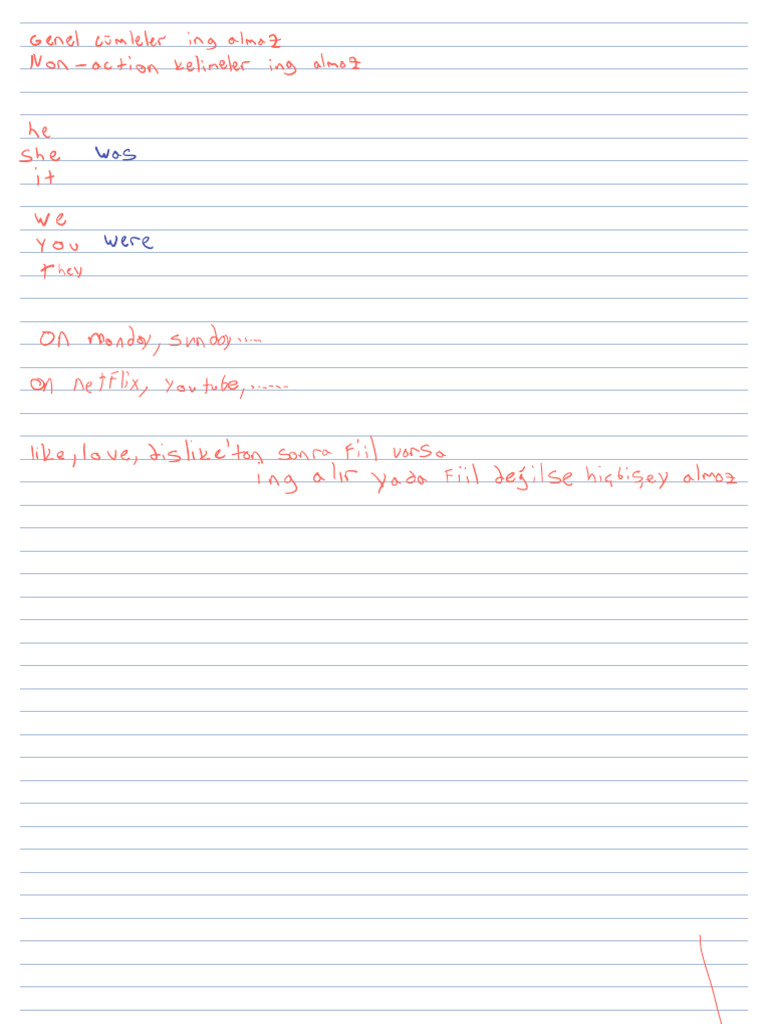 Genel cümleler ing almaz
Non-action kelimeler ing almaz
he
she was
it
we
you were
they
on monday, sunday.....
on netflix, youtube,......
like, love, dislike'tan sonra Fiil varsa
ing alır yada Fiil değilse hiçbişey almaz